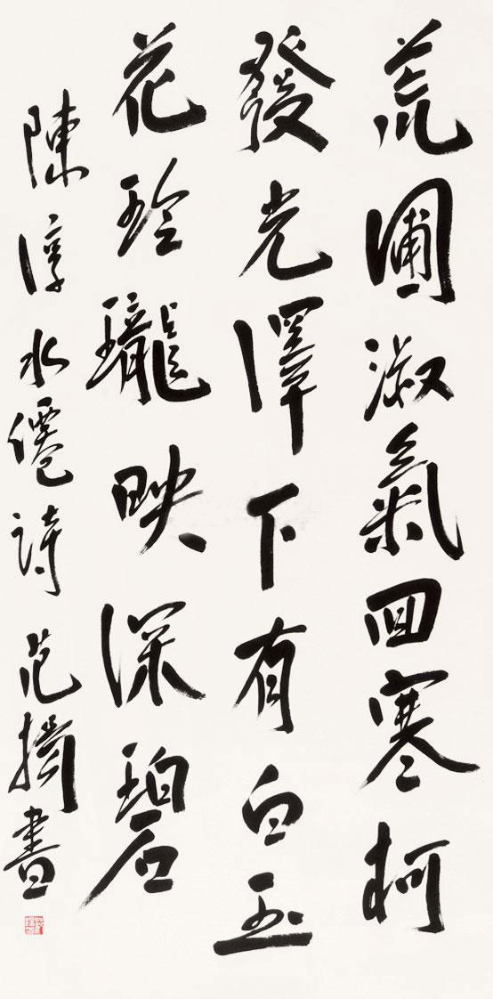 荒圃淑氣回寒柯
發光澤下有白玉
花玲瓏映深碧
陳淳水僊詩 范擕書